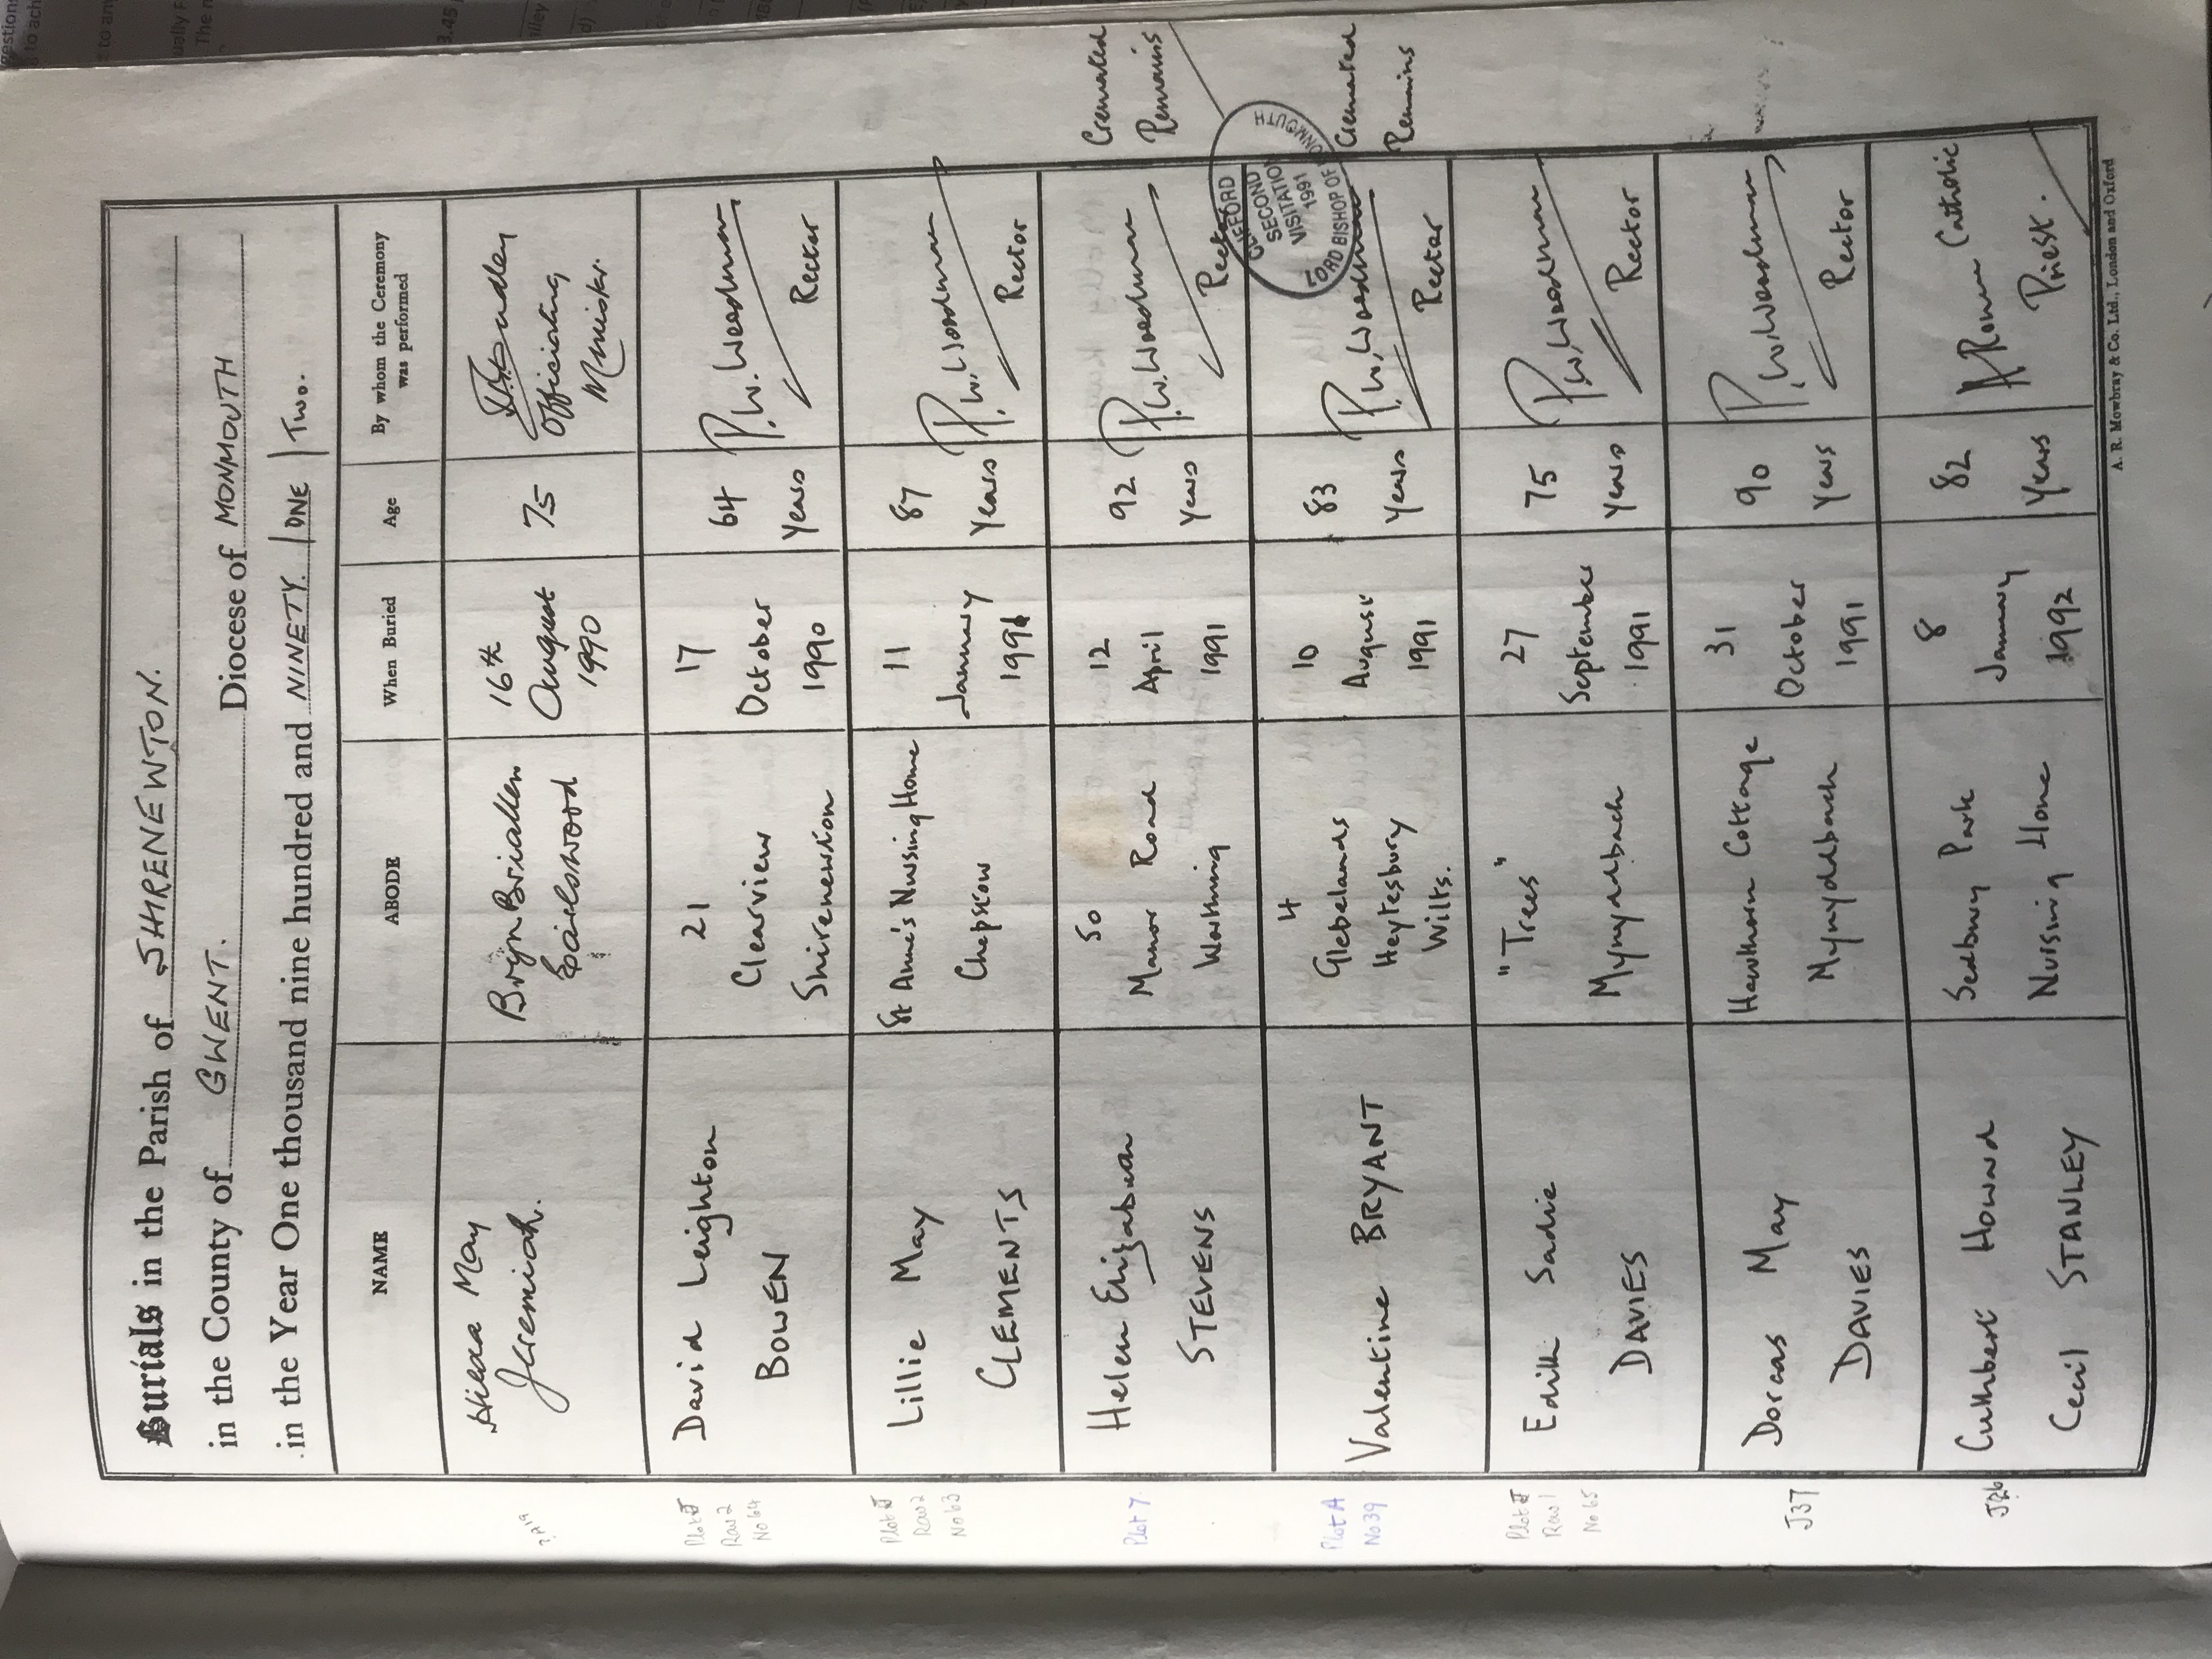 Burials in the Parish of SHIRENEWTON.
in the County of GWENT. Diocese of MONMOUTH
in the Year One thousand nine hundred and NINETY. / ONE / Two.
NAME ABODE When Buried Age By whom the Ceremony
was performed
May Bryn Briallen 16th 75
Jeremiah. Earlswood August Officiating
1990 Minister.
Plot J David Leighton 21 17 64 P.W. Woodman
Row 2 BOWEN Clearview October Years Rector
No 64 Shirenewton 1990
Plot J Lillie May St Anne's Nursing Home 11 87 P.W. Woodman
Row 2 CLEMENTS Chepstow January Years Rector
No 63 1991
Plot 7. Helen Elizabeth 50 12 92 P.W. Woodman Cremated
STEVENS Manor Road April Years Rector Remains
Worthing 1991
CLIFFORD
SECOND
VISITATION
1991
LORD BISHOP OF MONMOUTH
Plot A Valentine BRYANT 4 10 83 P.W. Woodman Cremated
No 39 Glebelands August Years Rector Remains
Heytesbury 1991
Wilts.
Plot J Edith Sadie "Trees" 27 75 P.W. Woodman
Row 1 DAVIES Mynyddbach September Years Rector
No 65 1991
J37 Dorcas May Hawthorn Cottage 31 90 P.W. Woodman
DAVIES Mynyddbach October Years Rector
1991
Cuthbert Howard Sedbury Park 8 82 A Roman Catholic
Cecil STANLEY Nursing Home January Years Priest.
1992
A. R. Mowbray & Co. Ltd., London and Oxford